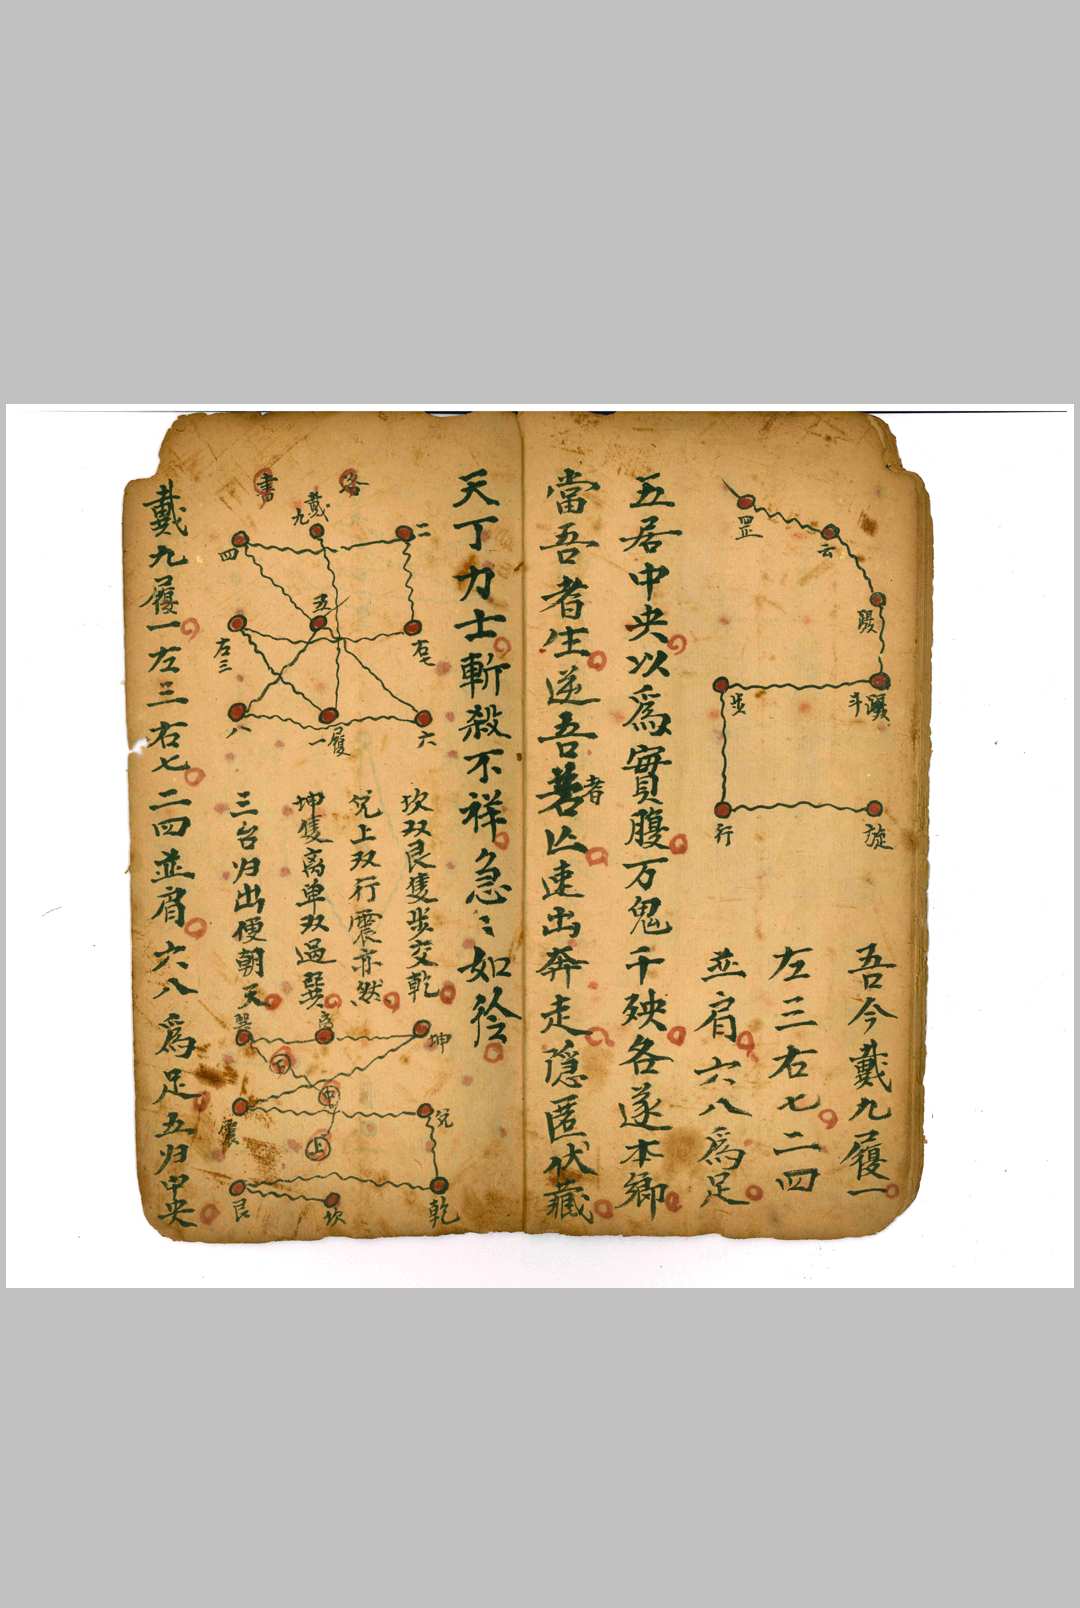 罡
云
斗躡
步
行
旋
吾今戴九履一
左三右七二四
並肩六八為足
五居中央以為實腹万鬼千殃各遂本鄉
當吾者生逆吾者亡速出奔走隱匿伏藏
天丁力士斬殺不祥急〻如
洛
書
戴九
二
四
五
右七
左三
履一
六
八
坎双艮隻步交乾
兌上双行震亦然
坤隻离单双過巽
三台归出便朝天
巽
离
坤
下
中
上
震
兌
艮
坎
乾
戴九履一左三右七二四並肩六八為足五归中央